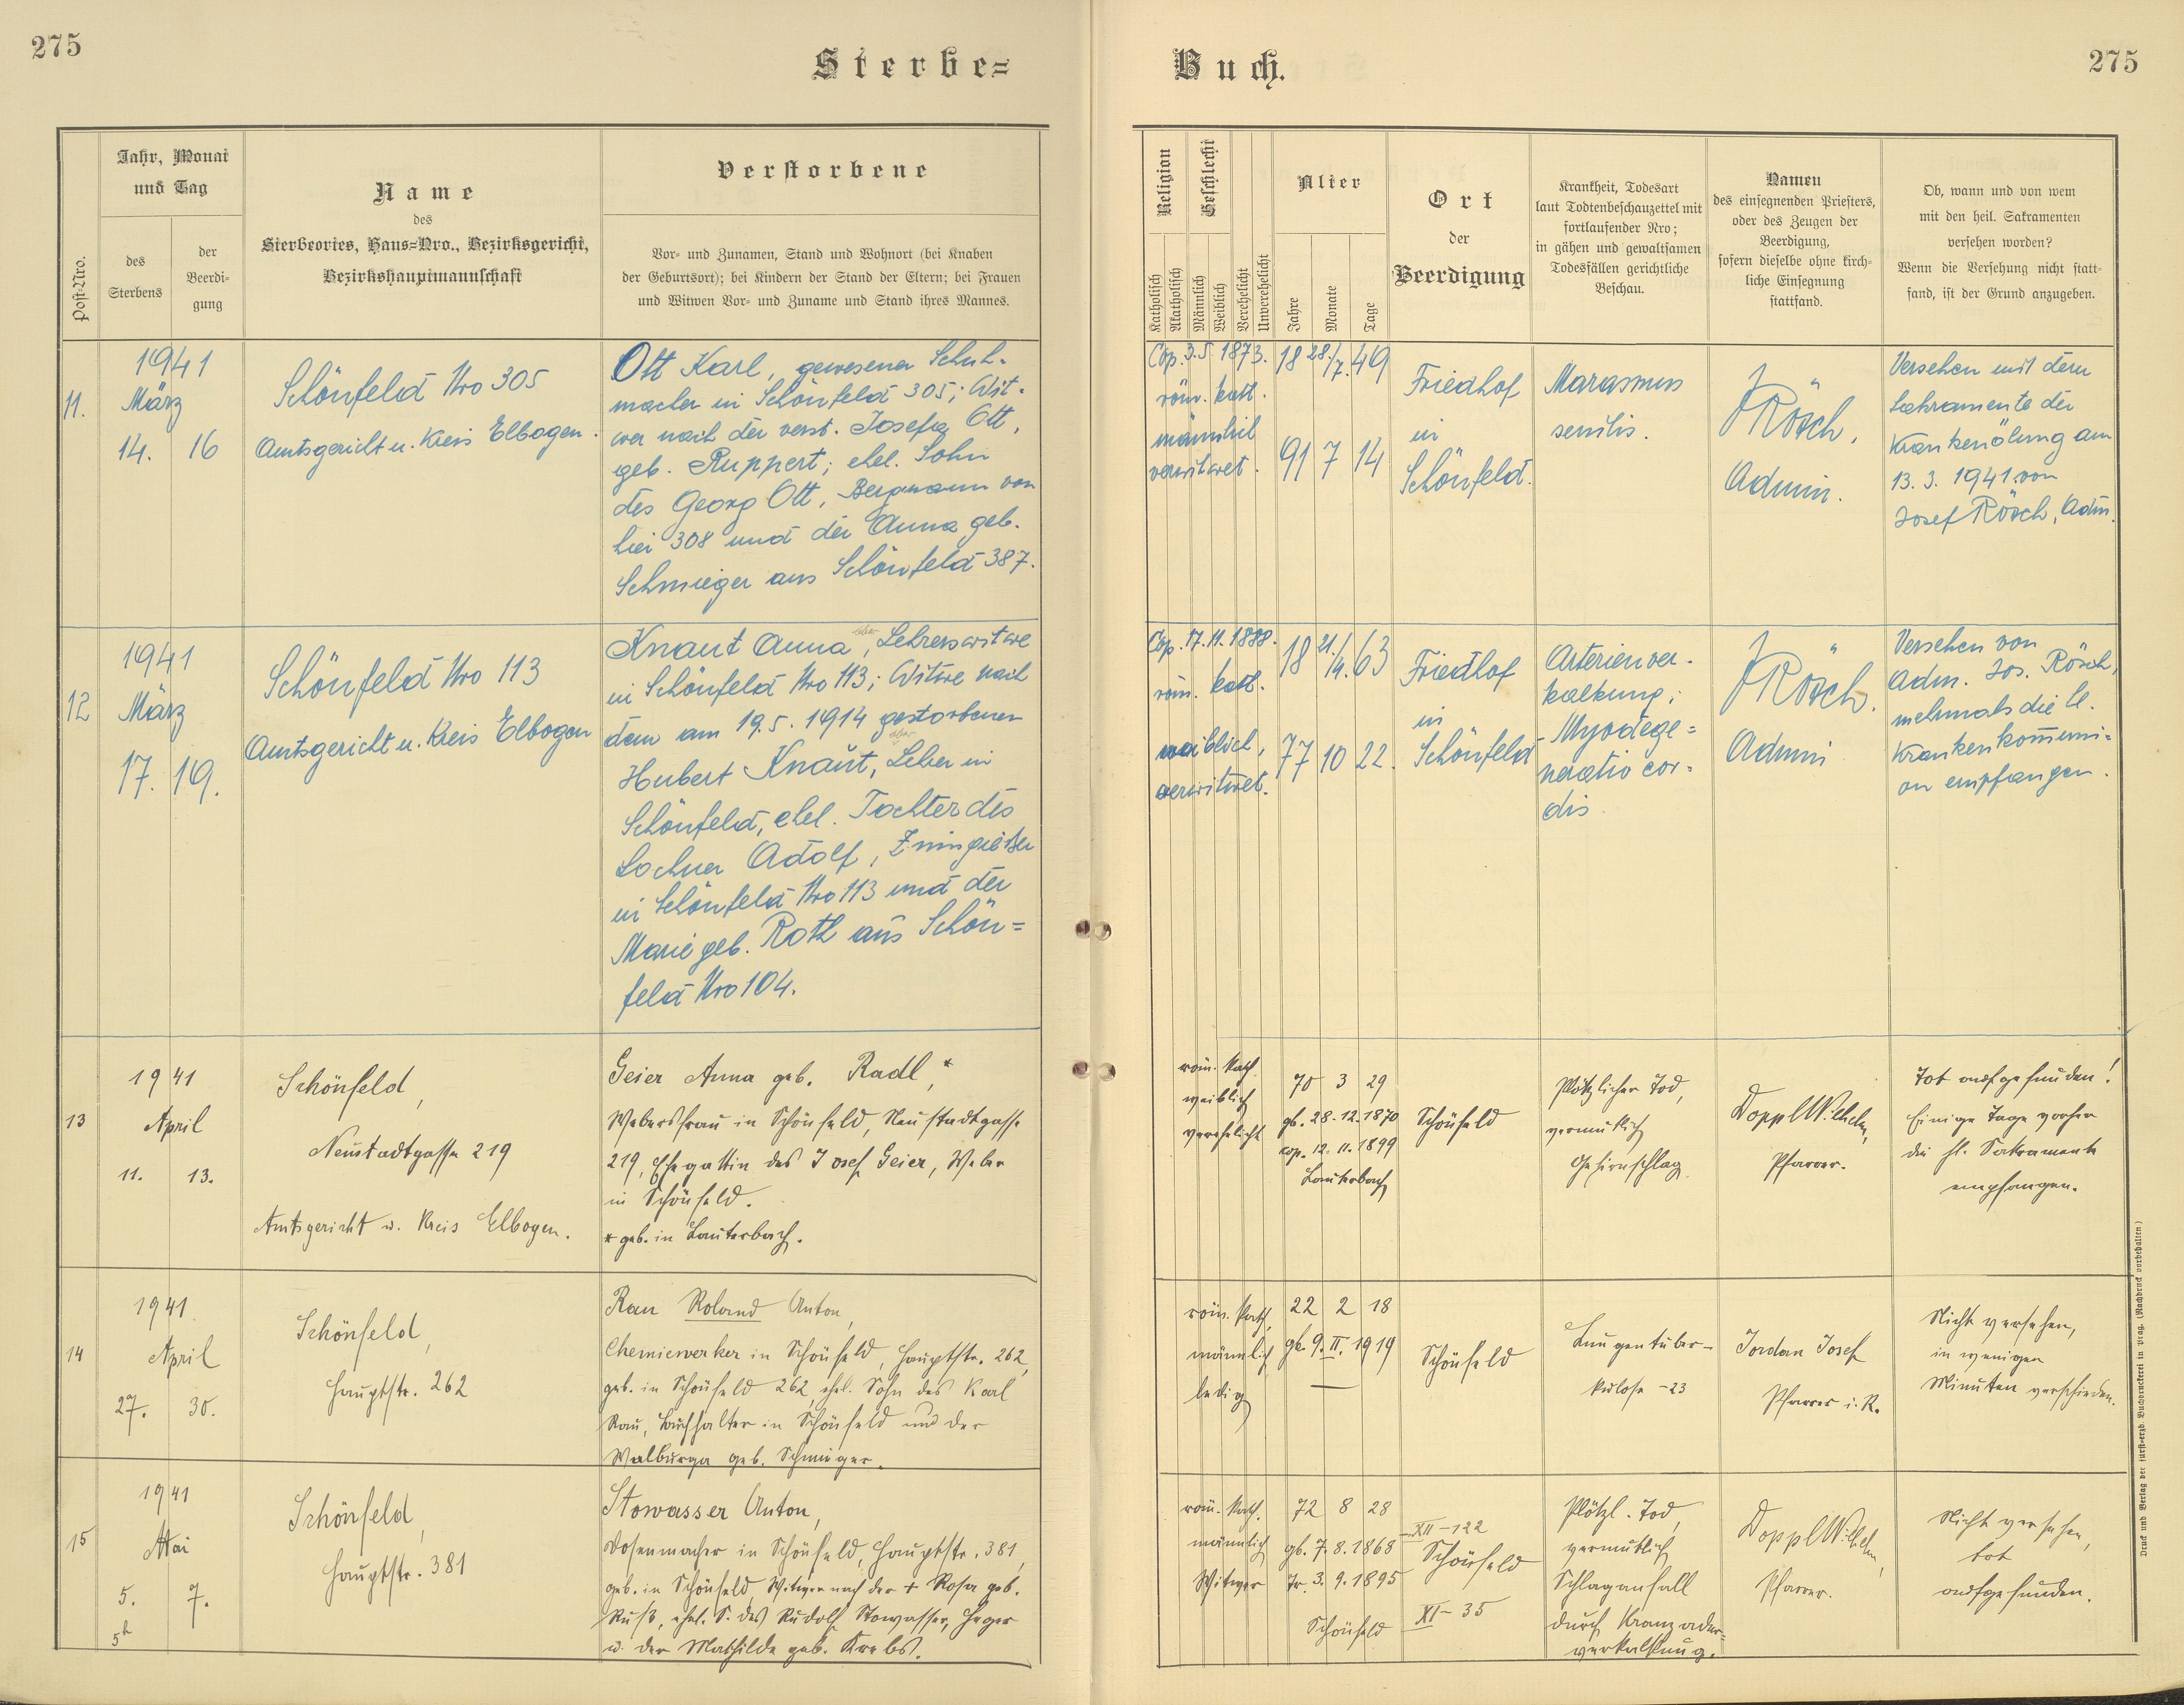 275
Sterbe=
Buch.
275
Post-Nro.
Jahr, Monat
und Tag
des
Sterbens
der
Beerdi-
gung
Name
des
Sterbeortes, Haus=Nro., Bezirksgericht,
Bezirkshauptmannschaft
Verstorbene
Vor- und Zunamen, Stand und Wohnort (bei Knaben
der Geburtsort); bei Kindern der Stand der Eltern; bei Frauen
und Witwen Vor- und Zuname und Stand ihres Mannes.
Religion
Katholisch
Akatholisch
Geschlecht
Männlich
Weiblich
Verehelicht
Unverehelicht
Alter
Jahre
Monate
Tage
Ort
der
Beerdigung
Krankheit, Todesart
laut Todtenbeschauzettel mit
fortlaufender Nro;
in gähen und gewaltsamen
Todesfällen gerichtliche
Beschau.
Namen
des einsegnenden Priesters,
oder des Zeugen der
Beerdigung,
sofern dieselbe ohne kirch-
liche Einsegnung
stattfand.
Ob, wann und von wem
mit den heil. Sakramenten
versehen worden?
Wenn die Versehung nicht statt-
fand, ist der Grund anzugeben.
11.
1941
März
14. 16
Schönfeld Nro 305
Amtsgericht u. Kreis Elbogen.
Ott Karl, gewesener Schuh-
macher in Schönfeld 305; Wit-
wer nach der verst. Josefa Ott,
geb. Ruppert; ehel. Sohn
des Georg Ott, Bergmann von
hier 308 und der Anna geb.
Schmieger aus Schönfeld 387.
Cop. 3.5.1873. 18 28./7. 49
röm. kath.
männlich
verwitwet. 91 7 14
Friedhof
in
Schönfeld.
Marasmus
senilis.
J Rösch,
Admin.
Versehen mit dem
Sakramente der
Krankenölung am
13. 3. 1941 von
Josef Rösch, Adm.
12
1941
März
17. 19.
Schönfeld Nro 113
Amtsgericht u. Kreis Elbogen
Knaut Anna, Lehrerswitwe
in Schönfeld Nro 113; Witwe nach
dem am 19.5.1914 gestorbenen
Hubert Knaut, Lehrer in
Schönfeld, ehel. Tochter des
Lochner Adolf, Zinngießer
in Schönfeld Nro 113 und der
Marie geb. Roth aus Schön=
feld Nro 104.
Cop. 17.11.1888. 18 21./4. 63
röm. kath.
weiblich,
verwitwet. 77 10 22.
Friedhof
in
Schönfeld
Arterienver-
kalkung;
Myodege=
neratio cor-
dis
J Rösch.
Admin
Versehen von
Adm. Jos. Rösch,
mehrmals die hl.
Krankenkommuni=
on empfangen.
13
1941
April
11. 13.
Schönfeld,
Neustadtgasse 219
Amtsgericht u. Kreis Elbogen.
Geier Anna geb. Radl,*
Webersfrau in Schönfeld, Neustadtgasse
219, Ehegattin des Josef Geier, Weber
in Schönfeld.
* geb. in Lauterbach.
röm. kath.
weiblich
verehelicht
70 3 29
gb. 28.12.1870
cop. 12.11.1899
Lauterbach
Schönfeld
Plötzlicher Tod,
vermutlich
Gehirnschlag.
Doppl Wilhelm,
Pfarrer.
Tot aufgefunden!
Einige Tage vorher
die hl. Sakramente
empfangen.
14
1941
April
27. 30.
Schönfeld,
Hauptstr. 262
Rau Roland Anton,
Chemiewerker in Schönfeld, Hauptstr. 262,
geb. in Schönfeld 262, ehel. Sohn des Karl
Rau, Buchhalter in Schönfeld und der
Walburga geb. Schmieger.
röm. kath,
männlich
ledig
22 2 18
gb. 9. II. 1919
—
Schönfeld
Lungentuber-
kulose -23
Jordan Josef
Pfarrer i. R.
Nicht versehen,
in wenigen
Minuten verschieden.
15
1941
Mai
5. 7.
5h
Schönfeld,
Hauptstr. 381
Stowasser Anton,
Dosenmacher in Schönfeld, Hauptstr. 381,
geb. in Schönfeld, Witwer nach der + Rosa geb.
Ruß, ehel. S. des Rudolf Stowasser, Heger
u. der Mathilde geb. Krebs.
röm. kath.
männlich
Witwer
72 8 28
gb. 7.8.1868
Tr. 3.9.1895
Schönfeld
XII-122
Schönfeld
XI-35
Plötzl. Tod,
vermutlich
Schlaganfall
durch Kranzader-
verkalkung.
Doppl Wilhelm,
Pfarrer.
Nicht versehen,
tot
aufgefunden.
Druck und Verlag der fürst=erzb. Buchdruckerei in Prag. (Nachdruck vorbehalten)